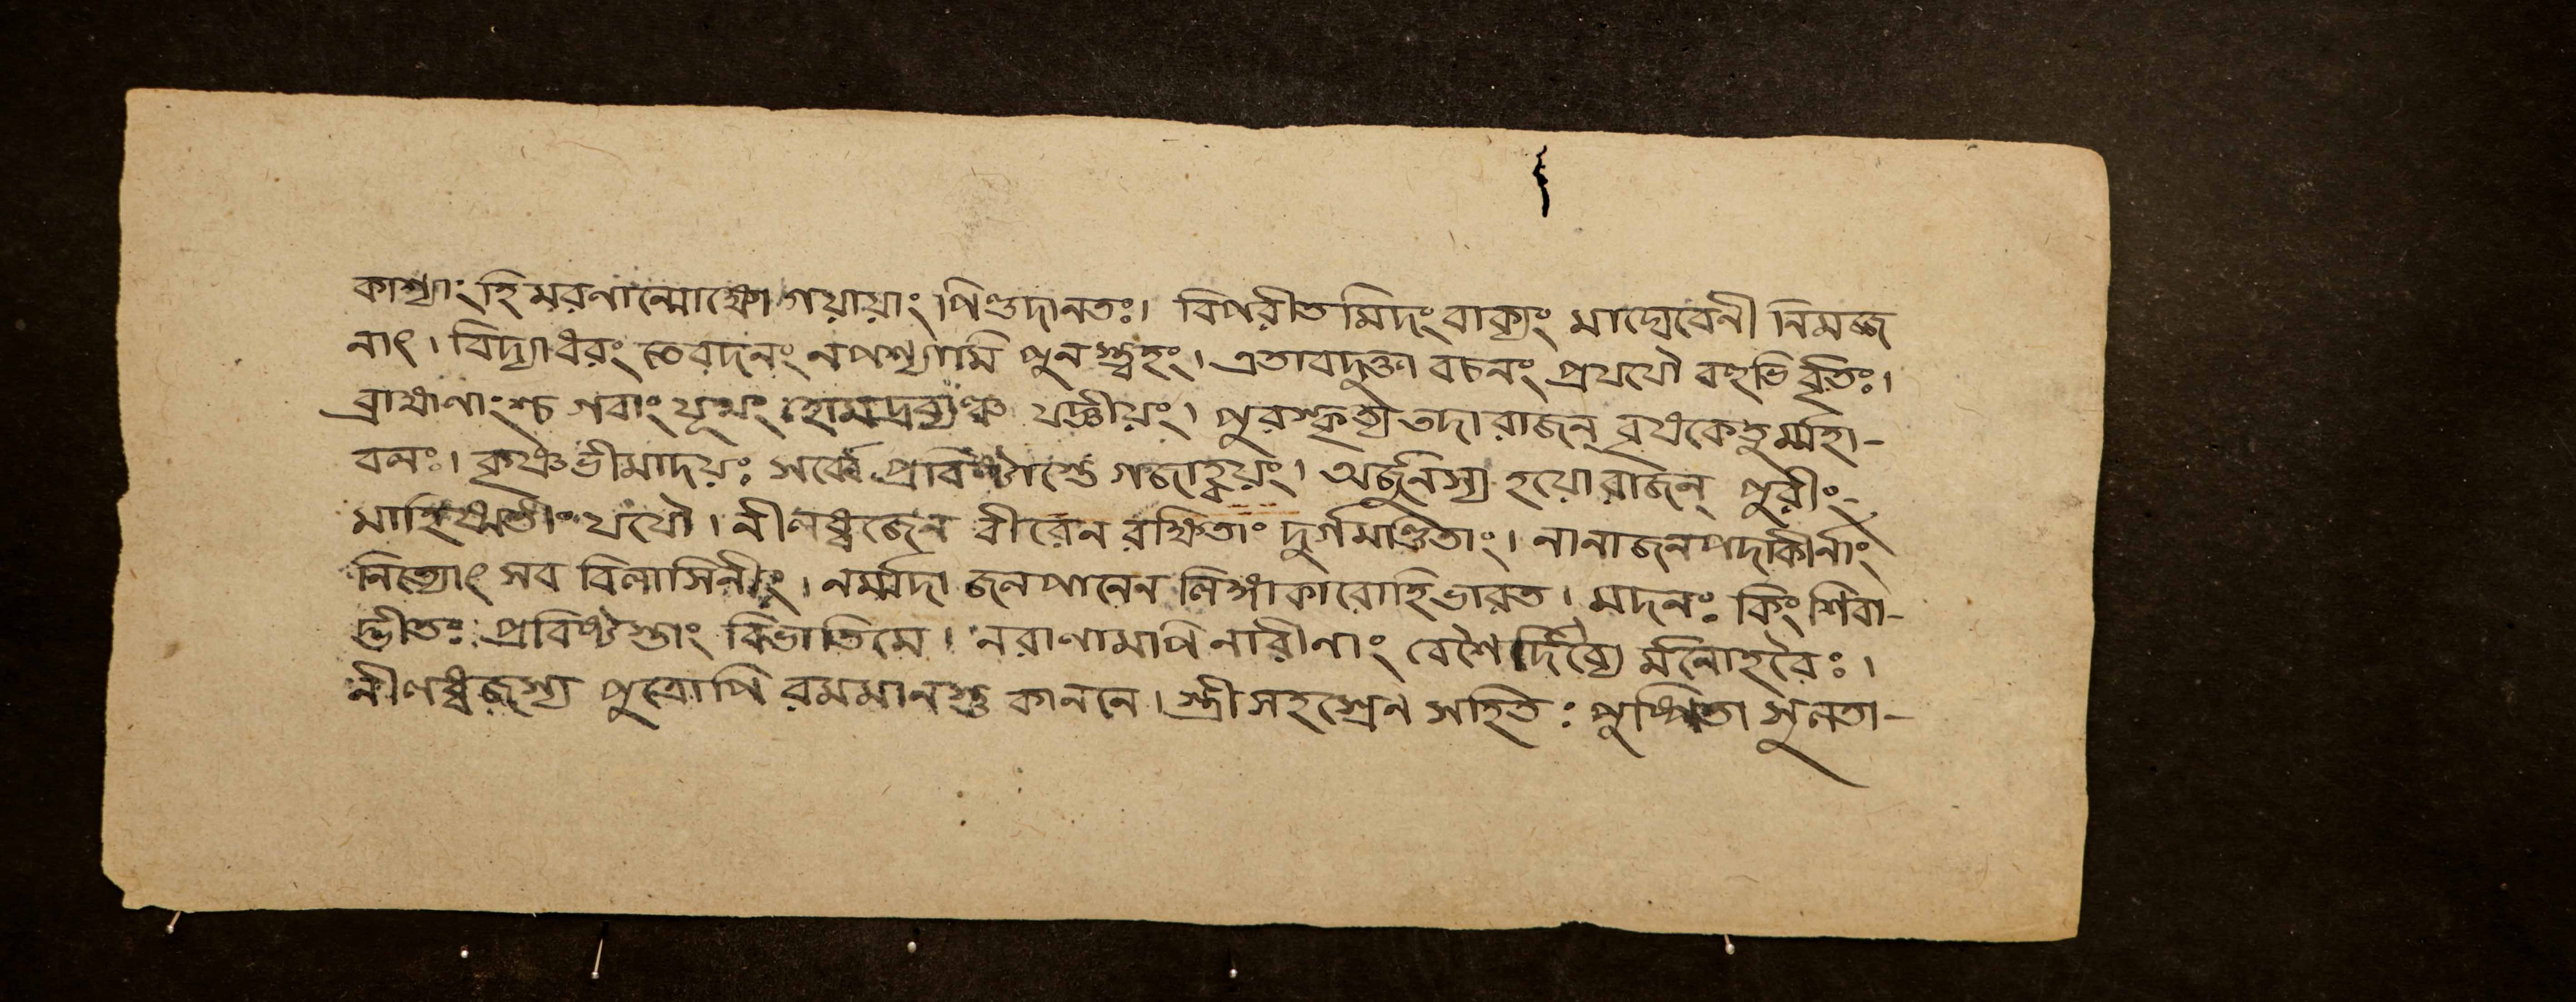 কাশ্যাং হি মরণান্মোক্ষো গয়ায়াং পিণ্ডদানতঃ। বিপরীতমিদং বাক্যং মাঘ্যেবেনী নিমজ্জ
নাৎ। বিদ্যাধরং তে বদনং ন পশ্যামি পুনস্ত্বহং। এতাবদুক্তা বচনং প্রযযৌ বহুভির্বৃতঃ।
ব্রাহ্মণাংশ্চ গবাং যূথং হোমদ্রব্যঞ্চ যজ্ঞীয়ং। পুরস্কৃত্য তদা রাজন্ ব্রধ্নকেতুর্ম্মহা-
বলঃ। কৃষ্ণভীমাদয়ঃ সর্ব্বে প্রবিষ্টাস্তে গজাহ্বয়ং। অর্জুনস্য হয়ো রাজন্ পুরীং-
মাহিষ্মতীং যযৌ। নীলধ্বজেন বীরেন রক্ষিতাং দুর্গমণ্ডিতাং। নানাজনপদাকীর্নাং
নিত্যোৎসব বিলাসিনীং। নর্ম্মদা জলপানেন লিঙ্গাকারোহি ভারত। মদনঃ কিং শিবা-
দ্ভীতঃ প্রবিষ্টস্তাং বিভাতি মে। নরাণামপি নারীণাং বেশৈর্দিব্যৈ র্মনোহরৈঃ।
নীলধ্বজস্য পুত্রোপি রমমানস্তু কাননে। স্ত্রীসহস্রেন সহিতঃ পুষ্পিতা সুলতা-